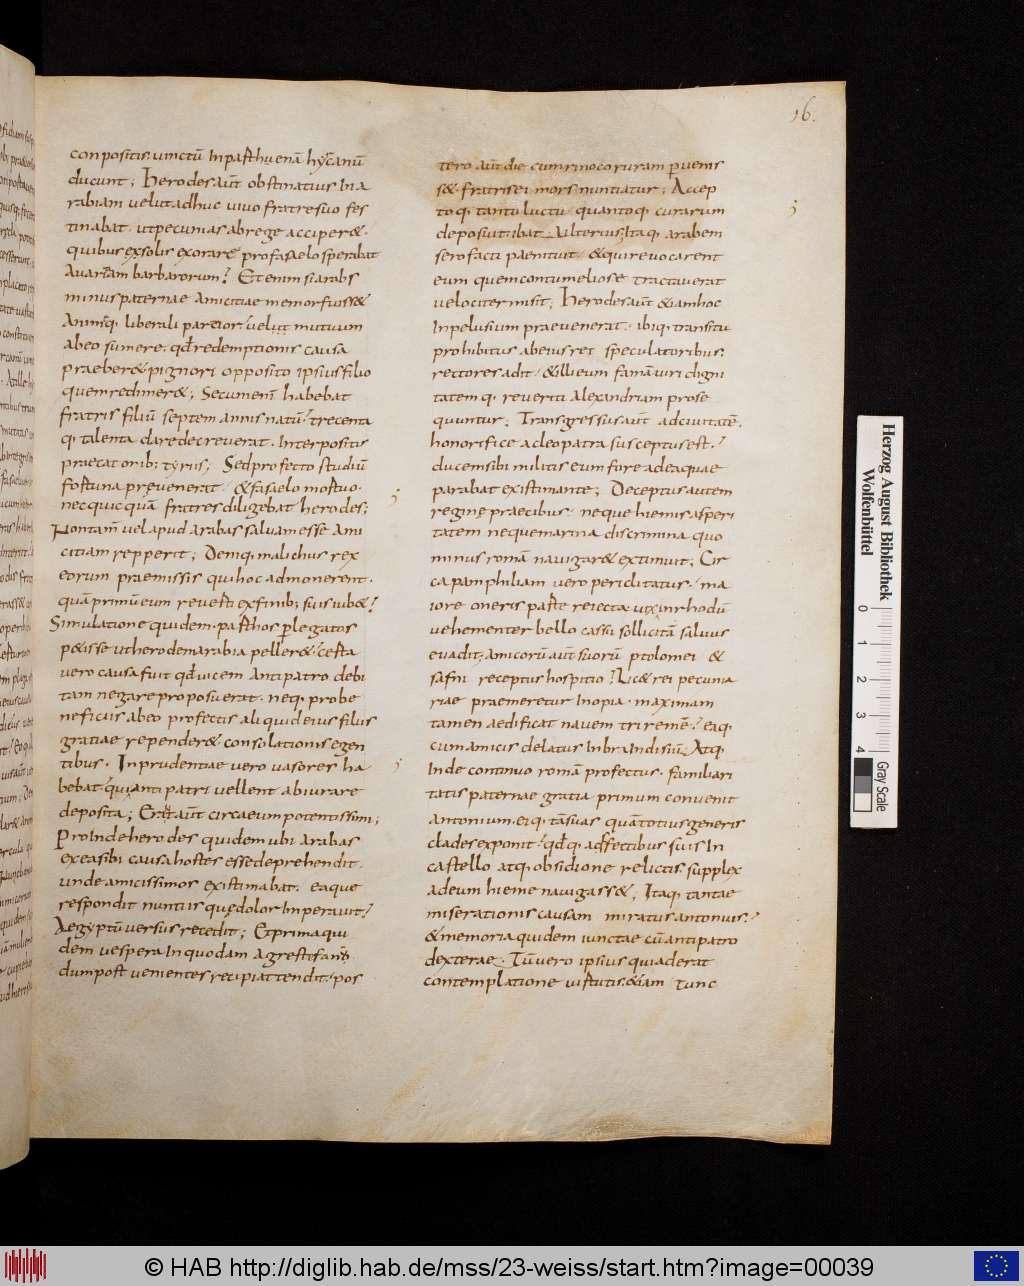 16.
conpositis. vinctū In pasthuenā hyrcanū
ducunt; Herodes aūt obstinatius In a
rabiam velut adhuc vivo fratre suo fes
tinabat. ut pecunias abrege acciper&.
quibus exsolis exorare pro fasaelo sperabat
Avaritiam barbarorum? Etenim si arabs
minus paternae Amicitiae memor fuiss&
Animoq. liberali parcior. velut mutuum
abeo sumere. qđ redemptionis causa
praeber& pignori opposito ipsius filio
quem redimer&; Secum enī habebat
fratris filiū septem annis natū. trecenta
q. talenta dare decreverat. Interpositis
praecatorib; tyriis; Sed profecto studiū
fortuna prevenerat. & fasaelo mortuo.
nec quicquā fratres diligebat herodes;
Non tam̄ vel apud Arabas salvam esse Ami
citiam repperit; Deniq. malichus rex
eorum praemissis qui hoc admonerent.
quā primū eum reverti ex finib; suis iub&?
Simulatione quidem. parthos p legatos
p&isse ut herodem arabia peller&. certa
vero causa fuit qđ vicem Antipatro debi
tam negare proposuerat. neq. pro be
neficiis abeo profectis aliquid eius filiis
gratiae repender& consolationis egen
tibus. Inprudentiae vero vasores ha
bebat qui anti patri vellent abiurare
deposita; Erat aūt circa eum potentissimi;
Proinde herodes quidem ubi Arabas
ex ea sibi causa hostes esse deprehendit.
unde amicissimos existimabat. eaque
respondit nuntiis quę dolor Imperavit?
Aegyptū versus recedit; Et prima qui
dem vespera In quodam Agresti fano
dum post venientes recipiat tendit. pos
tero aūt die cum rinocoruram pvenis
s& fratris ei mors nuntiatur; Accep
toq. tanto luctu quantoq. curarum
deposuit. ibat ulterius; Itaq. arabem
sero facti paenituit. & qui revocarent
eum quem contumeliose tractaverat
velociter misit; Herodes aūt & iam hoc
In pelusium praevenerat. ibiq. transitu
prohibitus abeius rei speculatoribus.
rectores adit. & illi eum famā viri digni
tatemq. reveriti Alexandriam prose
quuntur; Transgressus aūt ad civitatē.
honorifice acleopatra susceptus est.?
ducem sibi militis eum fore ad ea quae
parabat existimante; Deceptus autem
reginę praecibus. neque hiemis asperi
tatem neque marina discrimina quo
minus romā navigar& extimuit; Cir
ca pamphiliam vero periclitatus. ma
iore oneris parte reiecta vix in rhodū
vehementer bello cassii sollicitā salvus
evadit; Amicorū aūt suorū ptolomei &
safni receptus hospitio? Lic& rei pecunia
riae praemeretur Inopia. maximam
tamen aedificat navem triremē? eaq.
cum amicis delatus In brandisiū. Atq.
Inde continuo romā profectus. familiari
tatis paternae gratia primum convenit
Antonium. eiq. tā suas quā totius generis
clades exponit? qđq. adfectibus suis In
castello atq. obsidione relictis. supplex
ad eum hieme navigass&; Itaq. tantae
miserationis causam miratus antonius.?
& memoria quidem iunctae cū antipatro
dexterae. Tū vero ipsius quiaderat
contemplatione virtutis. &iam tunc
Herzog August Bibliothek
Wolfenbüttel
0 1 2 3 4
Gray Scale
© HAB http://diglib.hab.de/mss/23-weiss/start.htm?image=00039